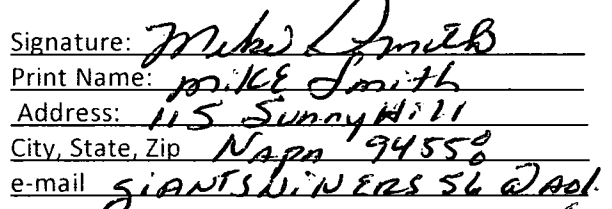 Signature: Mike Smith
Print Name: MIKE Smith
Address: 115 Sunny Hill
City, State, Zip Napa 94558
e-mail GIANTSWINERS 56 @ AOL.